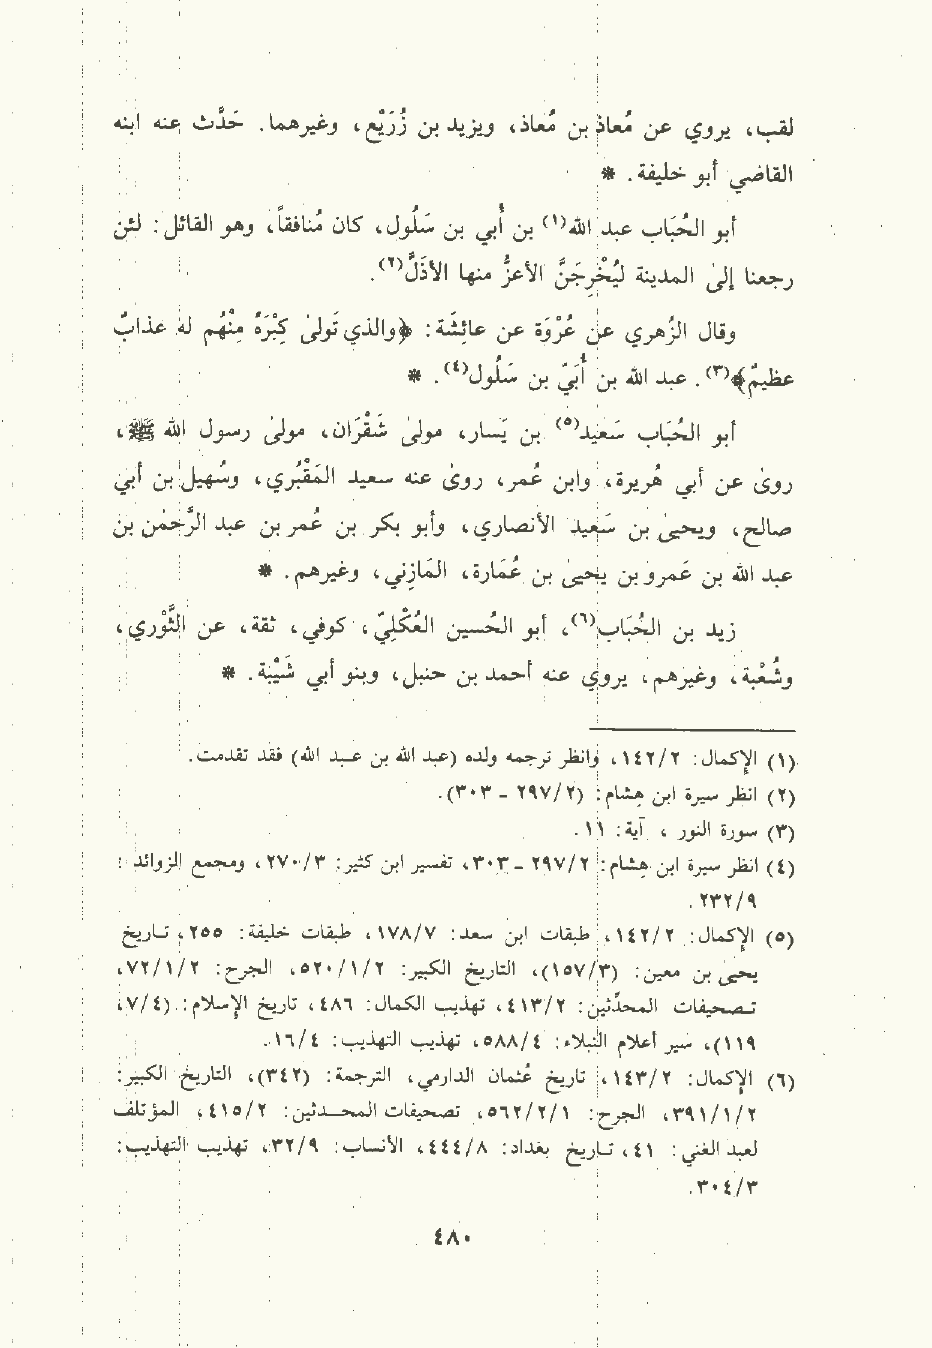 لقب، يروي عن مُعاذ بن مُعاذ، ويزيد بن زُرَيْع، وغيرهما. حَدَّث عنه ابنه
القاضي أبو خليفة. *
أبو الحُبَاب عبد الله(١) بن أُبي بن سَلُول، كان مُنافقاً، وهو القائل: لئن
رجعنا إلى المدينة ليُخْرِجَنَّ الأعزُّ منها الأذَلَّ(٢).
وقال الزُهري عن عُرْوَة عن عائِشَة: ﴿والذي تَولىٰ كِبْرَهُ مِنْهُم له عذابٌ
عظيمٌ﴾(٣). عبد الله بن أُبَيّ بن سَلُول(٤). *
أبو الحُبَاب سَعيد(٥) بن يَسار، مولىٰ شَقْرَان، مولىٰ رسول الله ﷺ،
روىٰ عن أبي هُريرة، وابن عُمر، روىٰ عنه سعيد المَقْبُري، وسُهيل بن أبي
صالح، ويحيىٰ بن سَعيد الأنصاري، وأبو بكر بن عُمر بن عبد الرَّحمٰن بن
عبد الله بن عَمرو بن يحيىٰ بن عُمَارة، المَازِني، وغيرهم. *
زيد بن الحُبَاب(٦)، أبو الحُسين العُكْلِيّ، كوفي، ثقة، عن الثَّوْري،
وشُعْبة، وغيرهم، يروي عنه أحمد بن حنبل، وبنو أبي شَيْبَة. *
(١) الإكمال: ١٤٢/٢، وانظر ترجمه ولده (عبد الله بن عبد الله) فقد تقدمت.
(٢) انظر سيرة ابن هِشام: (٢٩٧/٢ - ٣٠٣).
(٣) سورة النور ، آية: ١١.
(٤) انظر سيرة ابن هِشام: ٢٩٧/٢ - ٣٠٣، تفسير ابن كثير: ٢٧٠/٣، ومجمع الزوائد:
٢٣٢/٩.
(٥) الإكمال: ١٤٢/٢، طبقات ابن سعد: ١٧٨/٧، طبقات خليفة: ٢٥٥، تاريخ
يحيىٰ بن معين: (١٥٧/٣)، التاريخ الكبير: ٥٢٠/١/٢، الجرح: ٧٢/١/٢،
تصحيفات المحدِّثين: ٤١٣/٢، تهذيب الكمال: ٤٨٦، تاريخ الإسلام: (٧/٤،
١١٩)، سير أعلام النبلاء: ٥٨٨/٤، تهذيب التهذيب: ١٦/٤.
(٦) الإكمال: ١٤٣/٢، تاريخ عُثمان الدارمي، الترجمة: (٣٤٢)، التاريخ الكبير:
٣٩١/١/٢، الجرح: ٥٦٢/٢/١، تصحيفات المحدثين: ٤١٥/٢، المؤتلف
لعبد الغني: ٤١، تاريخ بغداد: ٤٤٤/٨، الأنساب: ٣٢/٩، تهذيب التهذيب:
٣٠٤/٣.
٤٨٠